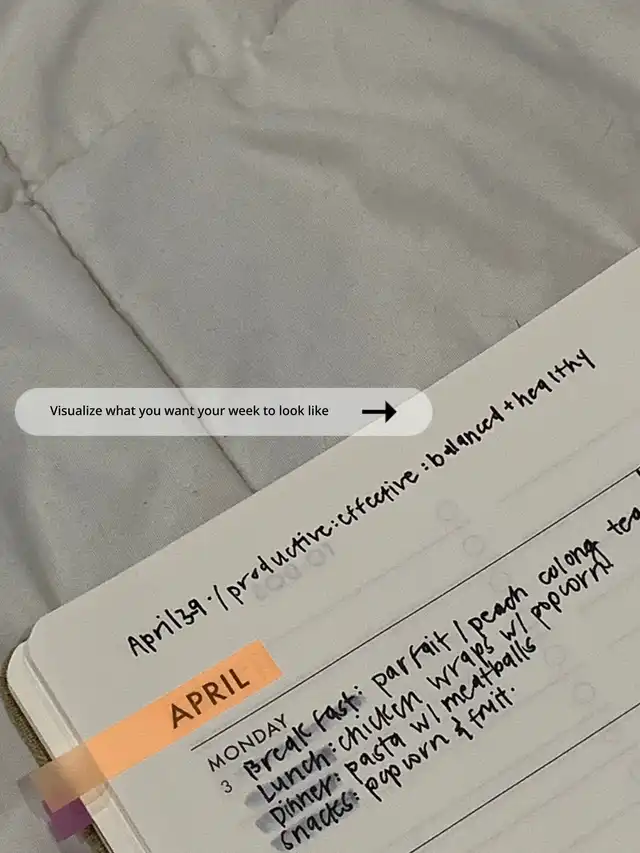 Visualize what you want your week to look like
April 3-9 · / productive : effective : balanced + healthy
APRIL
MONDAY
3
Breakfast: parfait / peach oolong tea
Lunch: chicken wraps w/ popcorn
Dinner: pasta w/ meatballs
snacks: popcorn & fruit.